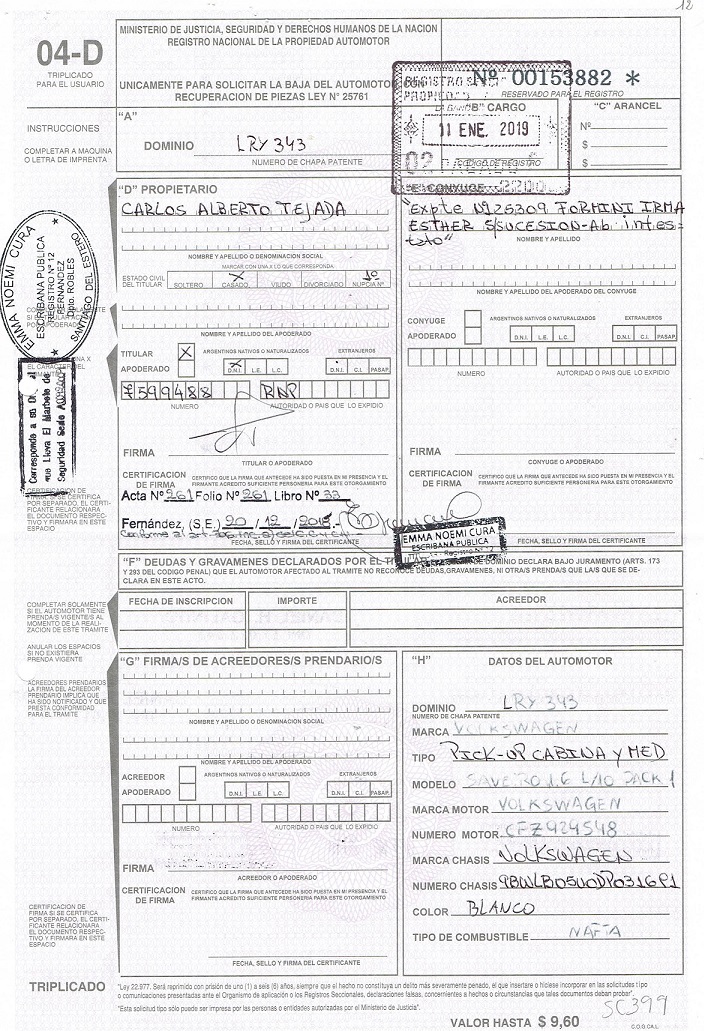 12
04-D
TRIPLICADO
PARA EL USUARIO
MINISTERIO DE JUSTICIA, SEGURIDAD Y DERECHOS HUMANOS DE LA NACION
REGISTRO NACIONAL DE LA PROPIEDAD AUTOMOTOR
UNICAMENTE PARA SOLICITAR LA BAJA DEL AUTOMOTOR CON
RECUPERACION DE PIEZAS LEY Nº 25761
Nº 00153882 *
RESERVADO PARA EL REGISTRO
11 ENE. 2019
02
2200
INSTRUCCIONES
COMPLETAR A MAQUINA
O LETRA DE IMPRENTA
"A"
DOMINIO LRY 343
NUMERO DE CHAPA PATENTE
"B" CARGO
CODIGO DE REGISTRO
"C" ARANCEL
Nº
$
$
"D" PROPIETARIO
CARLOS ALBERTO TEJADA
NOMBRE Y APELLIDO O DENOMINACION SOCIAL
MARCAR CON UNA X LO QUE CORRESPONDA
ESTADO CIVIL
DEL TITULAR
SOLTERO CASADO X VIUDO DIVORCIADO 1º NUPCIA Nº
NOMBRE Y APELLIDO DEL APODERADO
TITULAR X
APODERADO
ARGENTINOS NATIVOS O NATURALIZADOS
EXTRANJEROS
D.N.I. X L.E. L.C.
D.N.I. C.I. PASAP.
7599488 RNP
NUMERO
AUTORIDAD O PAIS QUE LO EXPIDIO
FIRMA
TITULAR O APODERADO
CERTIFICACION
DE FIRMA
CERTIFICO QUE LA FIRMA QUE ANTECEDE HA SIDO PUESTA EN MI PRESENCIA Y EL
FIRMANTE ACREDITO SUFICIENTE PERSONERIA PARA ESTE OTORGAMIENTO
Acta Nº 261 Folio Nº 261 Libro Nº 33
Fernández, (S.E.) 20 / 12 / 2018.-
FECHA, SELLO Y FIRMA DEL CERTIFICANTE
"E" CONYUGE
"Expte Nº25309 FORMINI IRMA
ESTHER S/SUCESION-Ab. intes=
tato"
NOMBRE Y APELLIDO
NOMBRE Y APELLIDO DEL APODERADO DEL CONYUGE
CONYUGE
APODERADO
ARGENTINOS NATIVOS O NATURALIZADOS
EXTRANJEROS
D.N.I. L.E. L.C.
D.N.I. C.I. PASAP.
NUMERO
AUTORIDAD O PAIS QUE LO EXPIDIO
FIRMA
CONYUGE O APODERADO
CERTIFICACION
DE FIRMA
CERTIFICO QUE LA FIRMA QUE ANTECEDE HA SIDO PUESTA EN MI PRESENCIA Y EL
FIRMANTE ACREDITO SUFICIENTE PERSONERIA PARA ESTE OTORGAMIENTO
FECHA, SELLO Y FIRMA DEL CERTIFICANTE
EMMA NOEMI CURA
ESCRIBANA PUBLICA
EMMA NOEMI CURA
ESCRIBANA PUBLICA
REGISTRO Nº 12
FERNANDEZ
Dpto. ROBLES
SANTIAGO DEL ESTERO
Corresponde a su
que Lleva El Marbete de
Seguridad Serie
CERTIFICACION DE
FIRMA SI SE CERTIFICA
POR SEPARADO, EL CERTI-
FICANTE RELACIONARA
EL DOCUMENTO RESPEC-
TIVO Y FIRMARA EN ESTE
ESPACIO
"F" DEUDAS Y GRAVAMENES DECLARADOS POR EL
DOMINIO DECLARA BAJO JURAMENTO (ARTS. 173
Y 293 DEL CODIGO PENAL) QUE EL AUTOMOTOR AFECTADO AL TRAMITE NO RECONOCE DEUDAS,GRAVAMENES, NI OTRA/S PRENDA/S QUE LA/S QUE SE DE-
CLARA EN ESTE ACTO.
COMPLETAR SOLAMENTE
SI EL AUTOMOTOR TIENE
PRENDA/S VIGENTE/S AL
MOMENTO DE LA REALI-
ZACION DE ESTE TRAMITE
ANULAR LOS ESPACIOS
SI NO EXISTIERA
PRENDA VIGENTE
FECHA DE INSCRIPCION
IMPORTE
ACREEDOR
ACREEDORES PRENDARIOS
LA FIRMA DEL ACREEDOR
PRENDARIO IMPLICA QUE
HA SIDO NOTIFICADO Y QUE
PRESTA CONFORMIDAD
PARA EL TRAMITE
"G" FIRMA/S DE ACREEDORES/S PRENDARIO/S
NOMBRE Y APELLIDO O DENOMINACION SOCIAL
NOMBRE Y APELLIDO DEL APODERADO
ACREEDOR
APODERADO
ARGENTINOS NATIVOS O NATURALIZADOS
EXTRANJEROS
D.N.I. L.E. L.C.
D.N.I. C.I. PASAP.
NUMERO
AUTORIDAD O PAIS QUE LO EXPIDIO
FIRMA
ACREEDOR O APODERADO
CERTIFICACION
DE FIRMA
CERTIFICO QUE LA FIRMA QUE ANTECEDE HA SIDO PUESTA EN MI PRESENCIA Y EL
FIRMANTE ACREDITO SUFICIENTE PERSONERIA PARA ESTE OTORGAMIENTO
FECHA, SELLO Y FIRMA DEL CERTIFICANTE
CERTIFICACION DE
FIRMA SI SE CERTIFICA
POR SEPARADO, EL CERTI-
FICANTE RELACIONARA
EL DOCUMENTO RESPEC-
TIVO Y FIRMARA EN ESTE
ESPACIO
"H" DATOS DEL AUTOMOTOR
DOMINIO LRY 343
NUMERO DE CHAPA PATENTE
MARCA VOLKSWAGEN
TIPO PICK-UP CABINA y MED
MODELO SAVEIRO 1.6 L/10 PACK 1
MARCA MOTOR VOLKSWAGEN
NUMERO MOTOR CFZ924548
MARCA CHASIS VOLKSWAGEN
NUMERO CHASIS 9BWLB05U0DP031691
COLOR BLANCO
TIPO DE COMBUSTIBLE NAFTA
TRIPLICADO
"Ley 22.977. Será reprimido con prisión de uno (1) a seis (6) años, siempre que el hecho no constituya un delito más severamente penado, el que insertare o hiciese incorporar en las solicitudes tipo
o comunicaciones presentadas ante el Organismo de aplicación o los Registros Seccionales, declaraciones falsas, concernientes a hechos o circunstancias que tales documentos deban probar".
"Esta solicitud tipo sólo puede ser impresa por las personas o entidades autorizadas por el Ministerio de Justicia".
SC399
VALOR HASTA $ 9,60